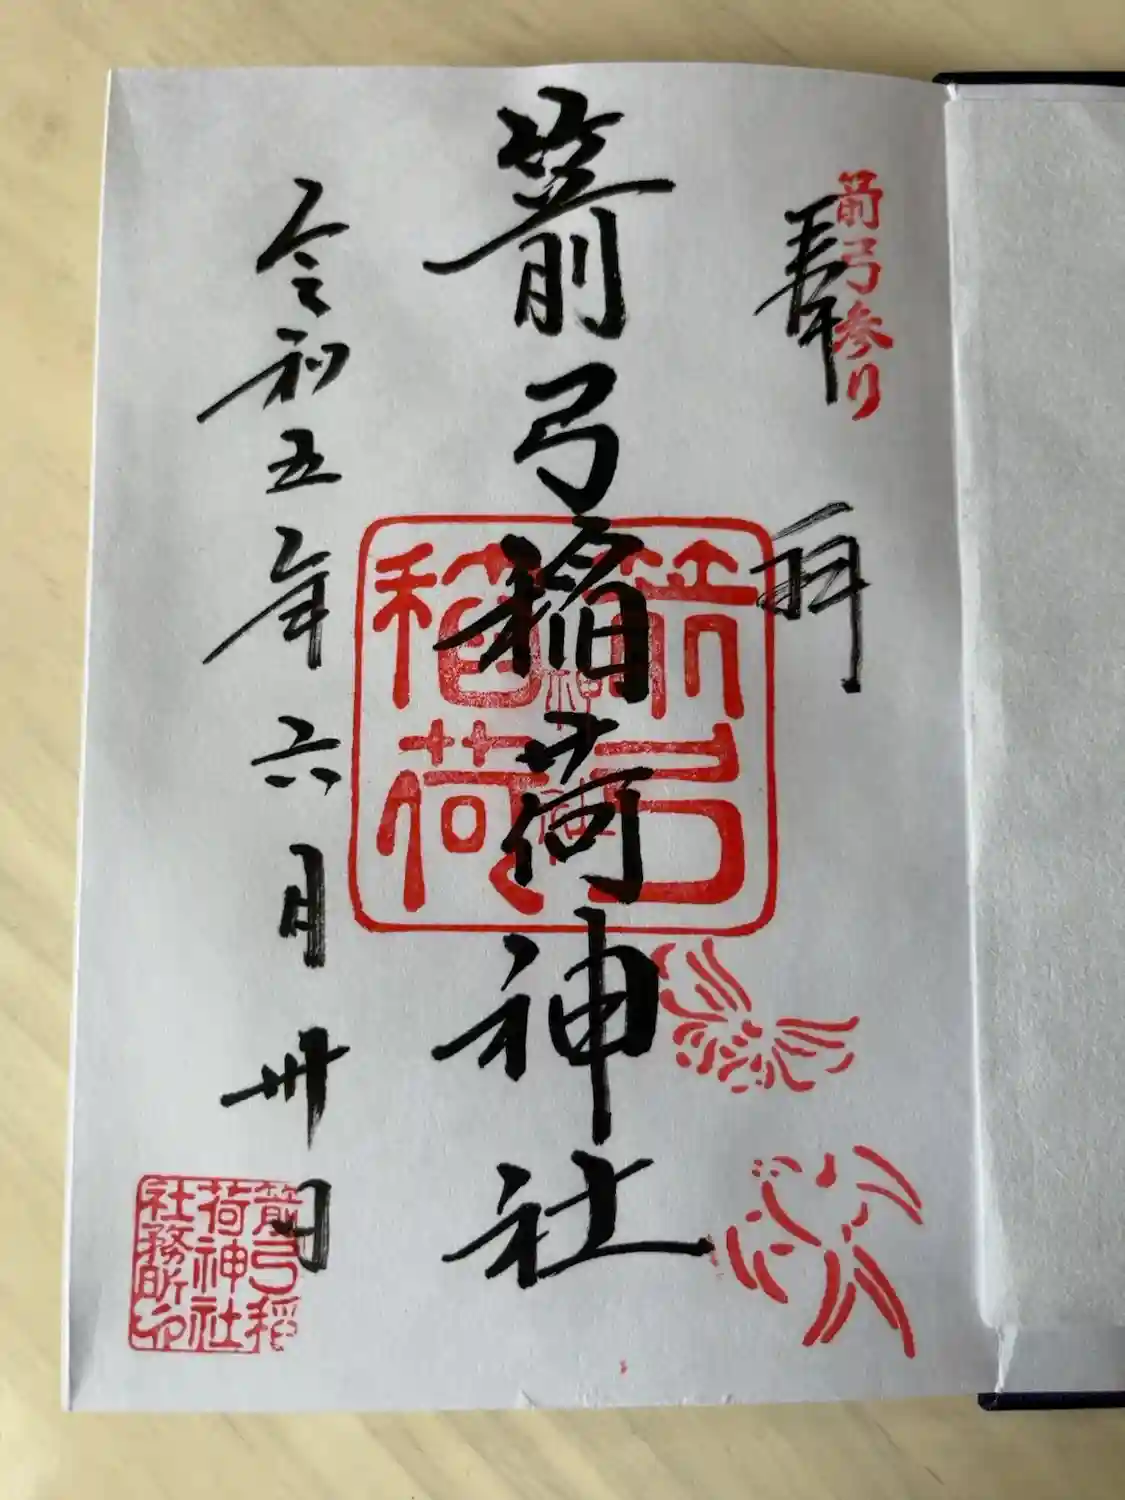 箭弓参り
奉拝
箭弓稲荷神社
箭弓
稲荷
神社
令和五年六月卅日
箭弓稲
荷神社
社務所印